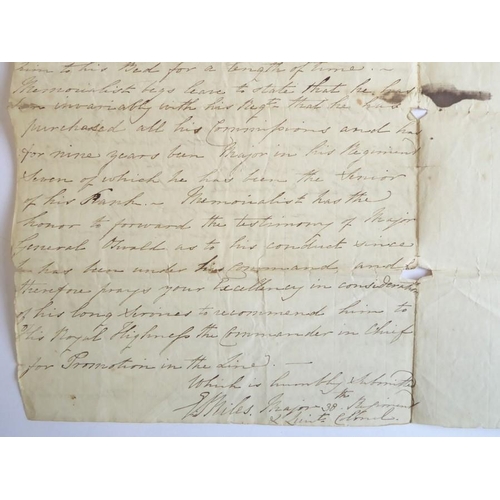 him to his Bed for a length of time. –
Memorialist begs leave to state that he has
been invariably with his Regt. that he has
purchased all his Commissions and has
for nine years been Major in his Regiment
Seven of which he has been the Senior
of his Rank. – Memorialist has the
honor to forward the testimony of Major
General Oswald as to his conduct since
he has been under his command and
therefore prays your Excellency in consideration
of his long Services to recommend him to
His Royal Highness the Commander in Chief
for Promotion in the Line. –
Which is humbly submitted
Miles, Major 38th Regiment
& Lieut. Colonel.